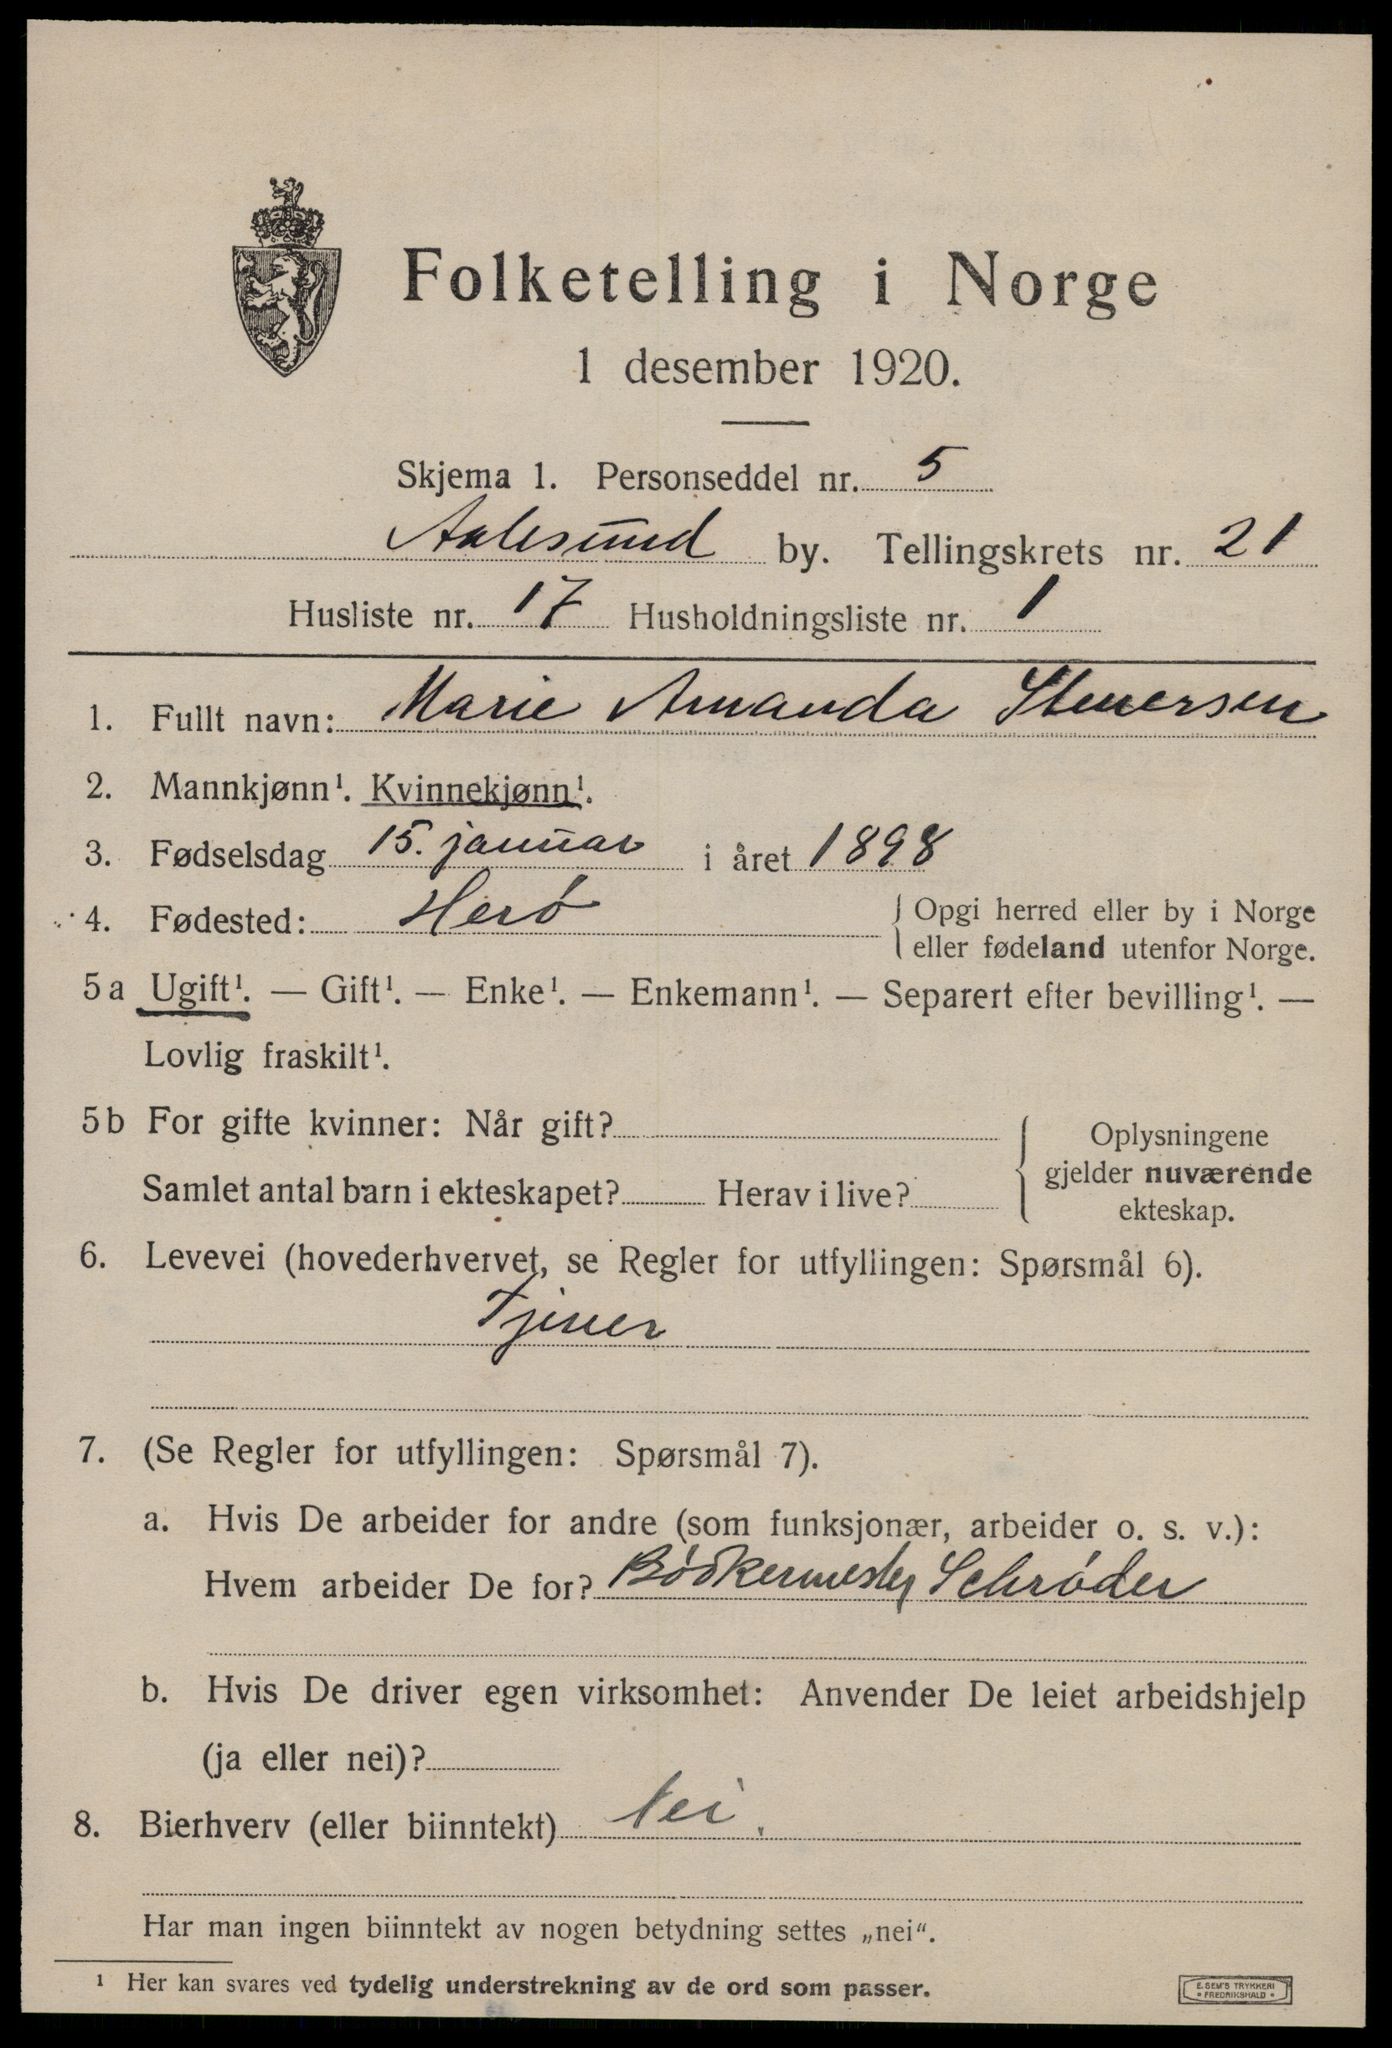 Folketelling i Norge
1 desember 1920.
Skjema 1. Personseddel nr. 5
Aalesund by. Tellingskrets nr. 21
Husliste nr. 17 Husholdningsliste nr. 1
1. Fullt navn: Marie Amanda
2. Mannkjønn¹. Kvinnekjønn¹.
3. Fødselsdag 15. januar i året 1898
4. Fødested: Herö { Opgi herred eller by i Norge
eller fødeland utenfor Norge.
5a Ugift¹. — Gift¹. — Enke¹. — Enkemann¹. — Separert efter bevilling¹. —
Lovlig fraskilt¹.
5b For gifte kvinner: Når gift? { Oplysningene
gjelder nuværende
ekteskap.
Samlet antal barn i ekteskapet? Herav i live?
6. Levevei (hovederhvervet, se Regler for utfyllingen: Spørsmål 6).
Tjener
7. (Se Regler for utfyllingen: Spørsmål 7).
a. Hvis De arbeider for andre (som funksjonær, arbeider o. s. v.):
Hvem arbeider De for? Bödkermester Schrøder
b. Hvis De driver egen virksomhet: Anvender De leiet arbeidshjelp
(ja eller nei)?
8. Bierhverv (eller biinntekt) Nei.
Har man ingen biinntekt av nogen betydning settes „nei“.
¹ Her kan svares ved tydelig understrekning av de ord som passer.
E. SEM'S TRYKKERI
FREDRIKSHALD